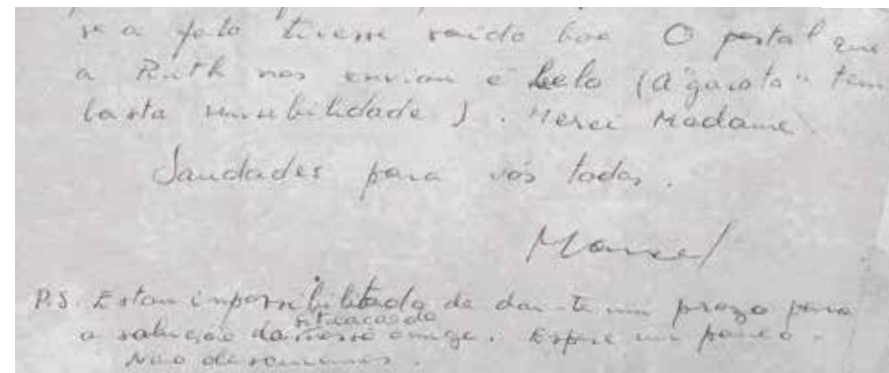 se a foto tivesse saído boa O postal que
a Ruth nos enviou é belo (A "garota" tem
basta sensibilidade). Merci Madame.
Saudades para vós todos.
Manuel
P.S. Estou impossibilitado de dar-te um prazo para
a solução da situação do nosso amigo. Espere um pouco.
Não desanimes.